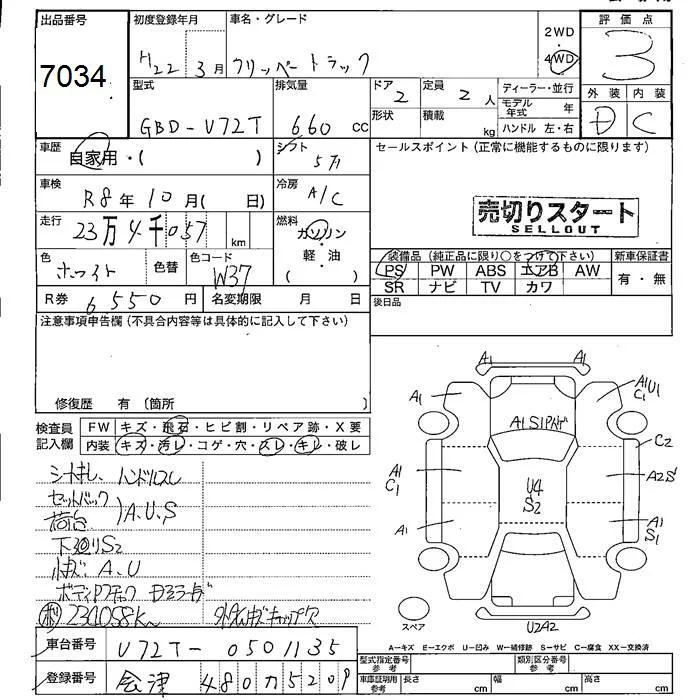 出品番号 初度登録年月 車名・グレード 評価点
7034 H22 3月 クリッパートラック 2WD 4WD 3
型式 排気量 ドア 定員 ディーラー・並行 外装 内装
GBD-V72T 660 cc 2 2人 モデル年式 年 D C
形状 積載 kg ハンドル 左・右
車歴 自家用・( ) シフト 5 セールスポイント(正常に機能するものに限ります)
車検 R8年10月( 日) 冷房 A/C
売切りスタート
SELLOUT
走行 23万4千057 km 燃料 ガソリン・軽油 ( )
装備品(純正品に限り○をつけて下さい) 新車保証書
色 ホワイト 色替 色コード W37
PS PW ABS エアB AW 有・無
SR ナビ TV カワ
R券 6550円 名変期限 月 日
後日品
注意事項申告欄(不具合内容等は具体的に記入して下さい)
修復歴 有(箇所 )
検査員記入欄 FW キズ・飛石・ヒビ割・リペア跡・X要
内装 キズ・汚レ・コゲ・穴・スレ・キレ・破レ
シートキレ、ハンドルスレ
セットバック
荷台 A.U.S
下廻りS2
A.U
234058K
キャップ欠
A1 A1
A1 A1U1
C1
A1S1
C2
A1 C1 A2S
U4
S2
A1 A1
S1
スペア
U2A2
A-キズ E-エクボ U-凹み W-補修跡 S-サビ C-腐食 XX-交換済
車台番号 V72T-0501135
型式指定番号 参考 類別区分番号 参考
登録番号 会津 480 5209
車庫証明用 参考 長さ cm 幅 cm 高さ cm